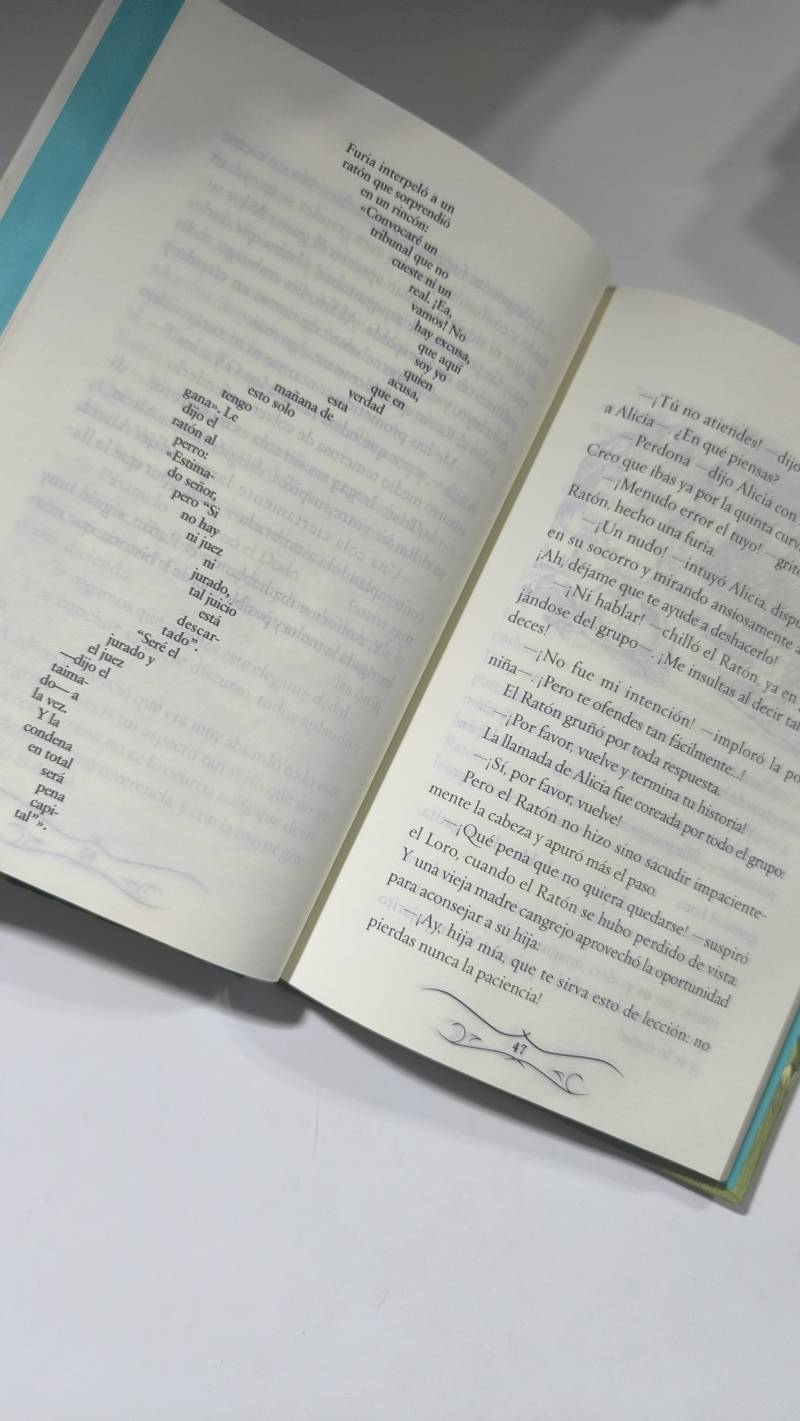 Furia interpeló a un
ratón que sorprendió
en un rincón:
«Convocaré un
tribunal que no
cueste ni un
real. ¡Ea,
vamos! No
hay excusa,
que aquí
soy yo
quien
acusa,
que en
verdad
esta
mañana de
esto solo
tengo
gana». Le
dijo el
ratón al
perro:
«Estima-
do señor,
pero “Si
no hay
ni juez
ni
jurado,
tal juicio
está
descar-
tado”.
“Seré el
jurado y
el juez
—dijo el
taima-
do— a
la vez.
Y la
condena
en total
será
pena
capi-
tal”».
—¡Tú no atiendes! —dijo
a Alicia—. ¿En qué piensas?
—Perdona —dijo Alicia con
Creo que ibas ya por la quinta curv
—¡Menudo error el tuyo! —gritó
Ratón, hecho una furia.
—¡Un nudo! —intuyó Alicia, dispu
en su socorro y mirando ansiosamente a
¡Ah, déjame que te ayude a deshacerlo!
—¡Ni hablar! —chilló el Ratón, ya en
jándose del grupo—. ¡Me insultas al decir tal
deces!
—¡No fue mi intención! —imploró la po
niña—. ¡Pero te ofendes tan fácilmente...!
El Ratón gruñó por toda respuesta.
—¡Por favor, vuelve y termina tu historia!
La llamada de Alicia fue coreada por todo el grupo:
—¡Sí, por favor, vuelve!
Pero el Ratón no hizo sino sacudir impaciente-
mente la cabeza y apuró más el paso.
—¡Qué pena que no quiera quedarse! —suspiró
el Loro, cuando el Ratón se hubo perdido de vista.
Y una vieja madre cangrejo aprovechó la oportunidad
para aconsejar a su hija:
—¡Ay, hija mía, que te sirva esto de lección: no
pierdas nunca la paciencia!
47